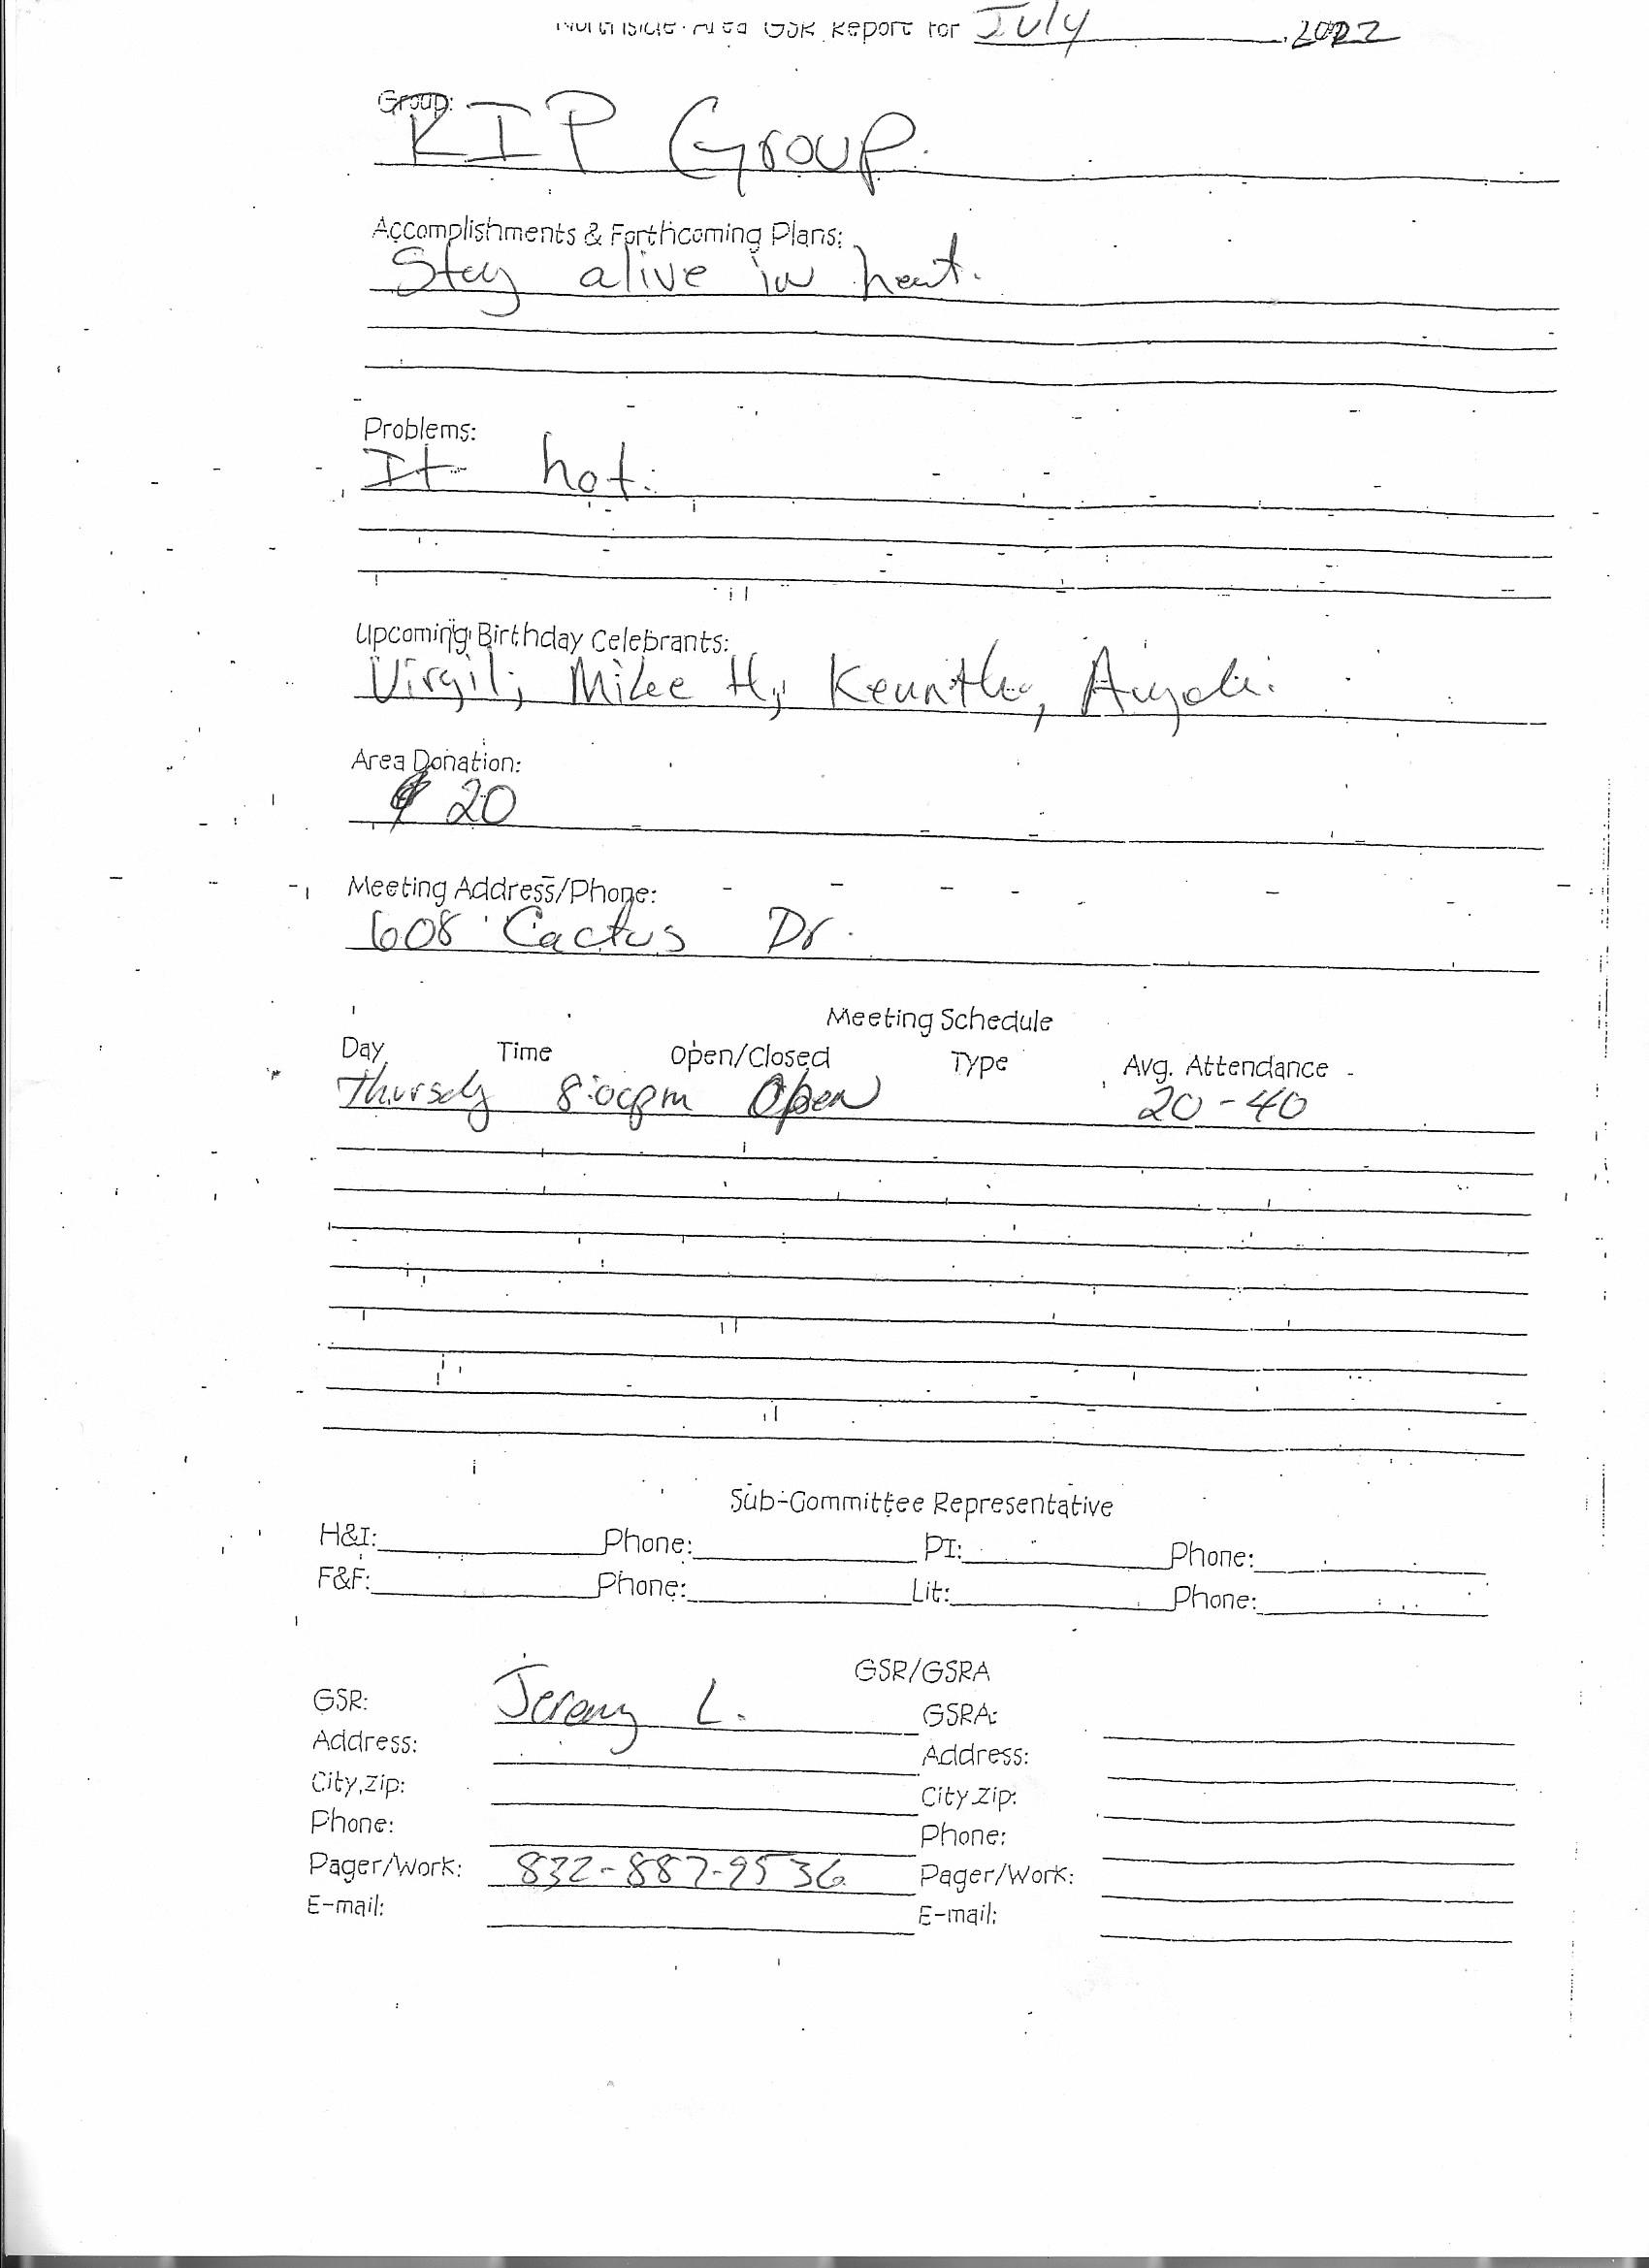 Northside Area GSR Report for July, 2022
Group:
RIP Group.
Accomplishments & Forthcoming Plans:
Stay alive in heat.
Problems:
It hot.
Upcoming Birthday Celebrants:
Virgil, Mike H,
Area Donation:
$ 20
Meeting Address/Phone:
608 Cactus Dr.
Meeting Schedule
Day Time Open/Closed Type Avg. Attendance
Thursdy 8:00pm Open 20-40
Sub-Committee Representative
H&I: Phone: PI: Phone:
F&F: Phone: Lit: Phone:
GSR/GSRA
GSR: Jeremy L. GSRA:
Address: Address:
City,Zip: City,Zip:
Phone: Phone:
Pager/Work: 832-887-9536 Pager/Work:
E-mail: E-mail: